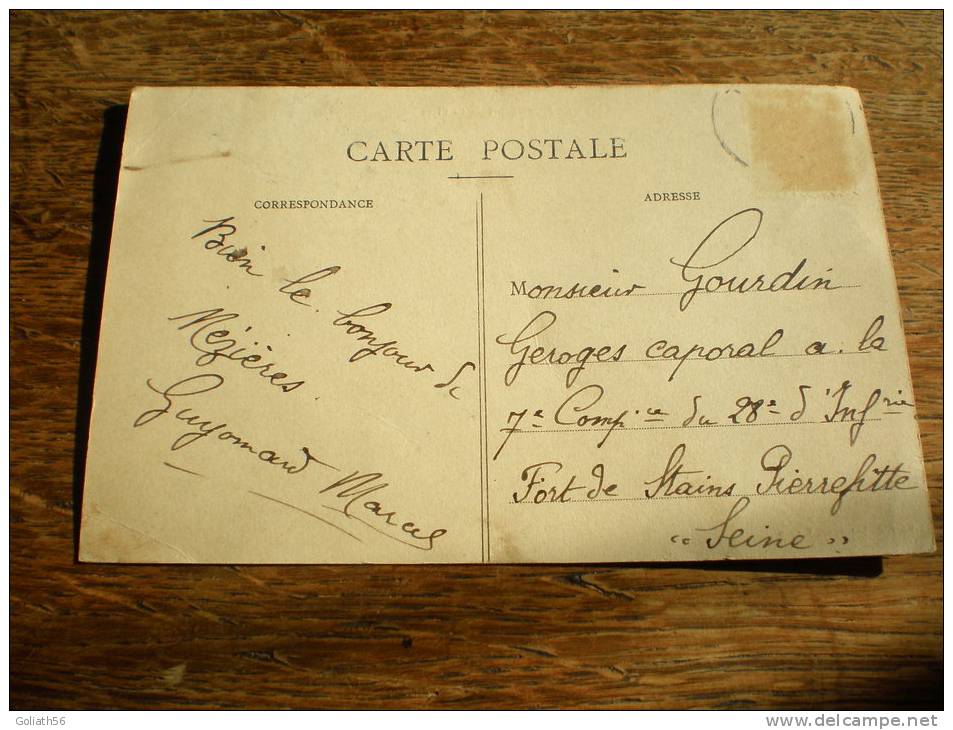 CARTE POSTALE
CORRESPONDANCE
Bien le bonjour de
Mézières.
Guyomard Marcel
ADRESSE
Monsieur Gourdin
Geroges caporal a. la
7e Compie du 28e d'Infrie
Fort de Stains Pierrefitte
"Seine"
Goliath56
www.delcampe.net